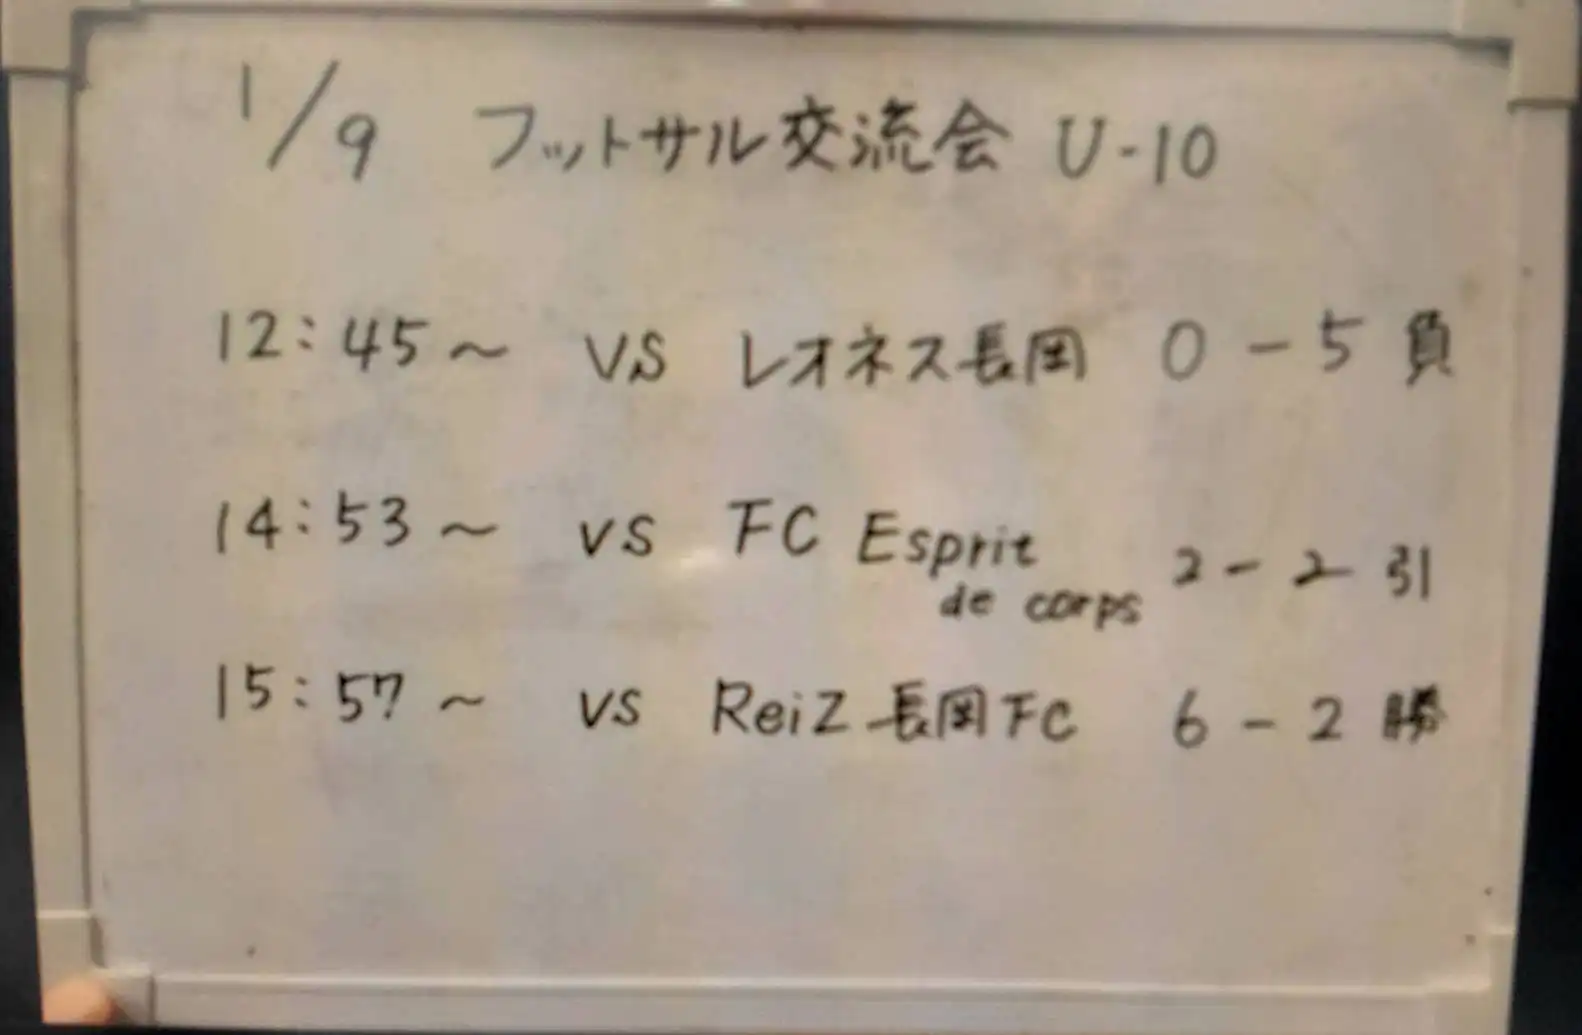 1/9 フットサル交流会 U-10
12:45～ VS レオネス長岡 0-5 負
14:53～ VS FC Esprit de corps 2-2 引
15:57～ VS ReiZ長岡FC 6-2 勝